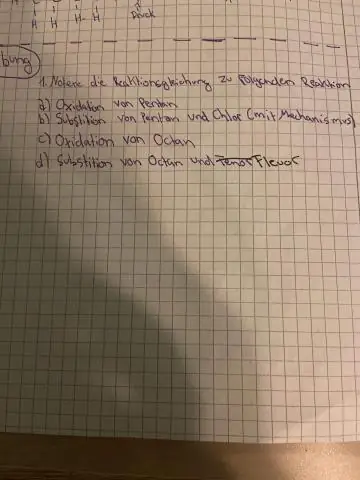 H H H H Druck
bung
1. Notere die Reaktionsgleichung zu folgenden Reaktion
a) Oxidation von Pentan
b) Substition von Pentan und Chlor (mit Mechanismus)
c) Oxidation von Octan
d) Substition von Octan und Fleuor